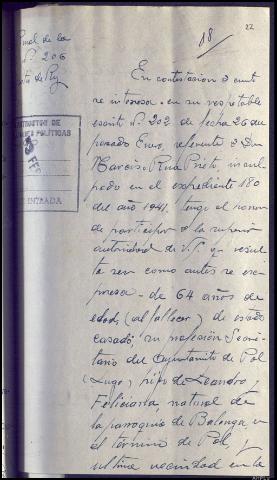 18/
22
de la
Nº 206
INSTRUCTOR DE
POLÍTICAS
FEB
ENTRADA
En contestacion á cuant
se interesa en su respetable
escrito Nº 202 de fecha 26 del
pasado Enero, referente á Don
Narciso Rua Prieto incul
pado en el expediente 180
del año 1941, tengo el honor
de participar á la superior
autoridad de V.S. que resul
ta ser como antes se ex
presa - de 64 años de
edad, (al fallecer) de estado
casado, su profesión Secre
tario del Ayuntamiento de Pol
(Lugo) hijo de Leandro y
Feliciana, natural de
la parroquia de Balonga, en
el término de Pol, y
ultima vecindad en la